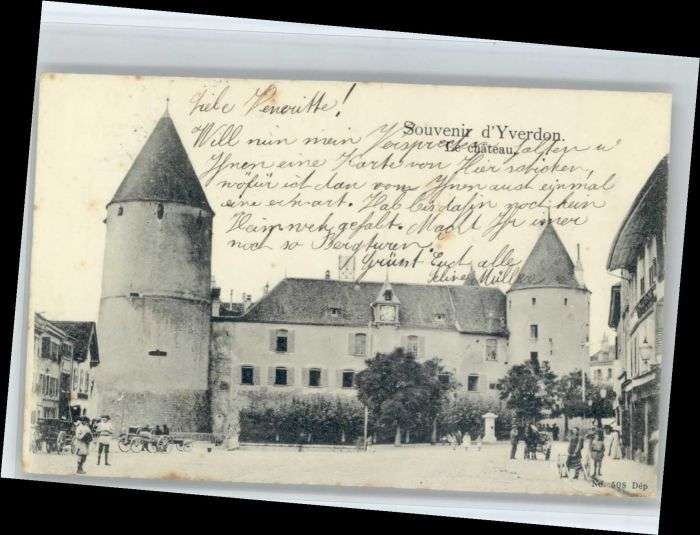 Liebe Henriitte!
Will nun mein Versprechen halten u
Ihnen eine Karte von Hier schicken,
wofür ich dan vom Ihnen auch einmal
eine erhart. Hab bis dahin noch kein
Heimweh gehabt. Macht Ihr imer
noch so Bergturen.
Grüsst Euch alle
Müller
Souvenir d'Yverdon.
Le château.
No. 508 Dép